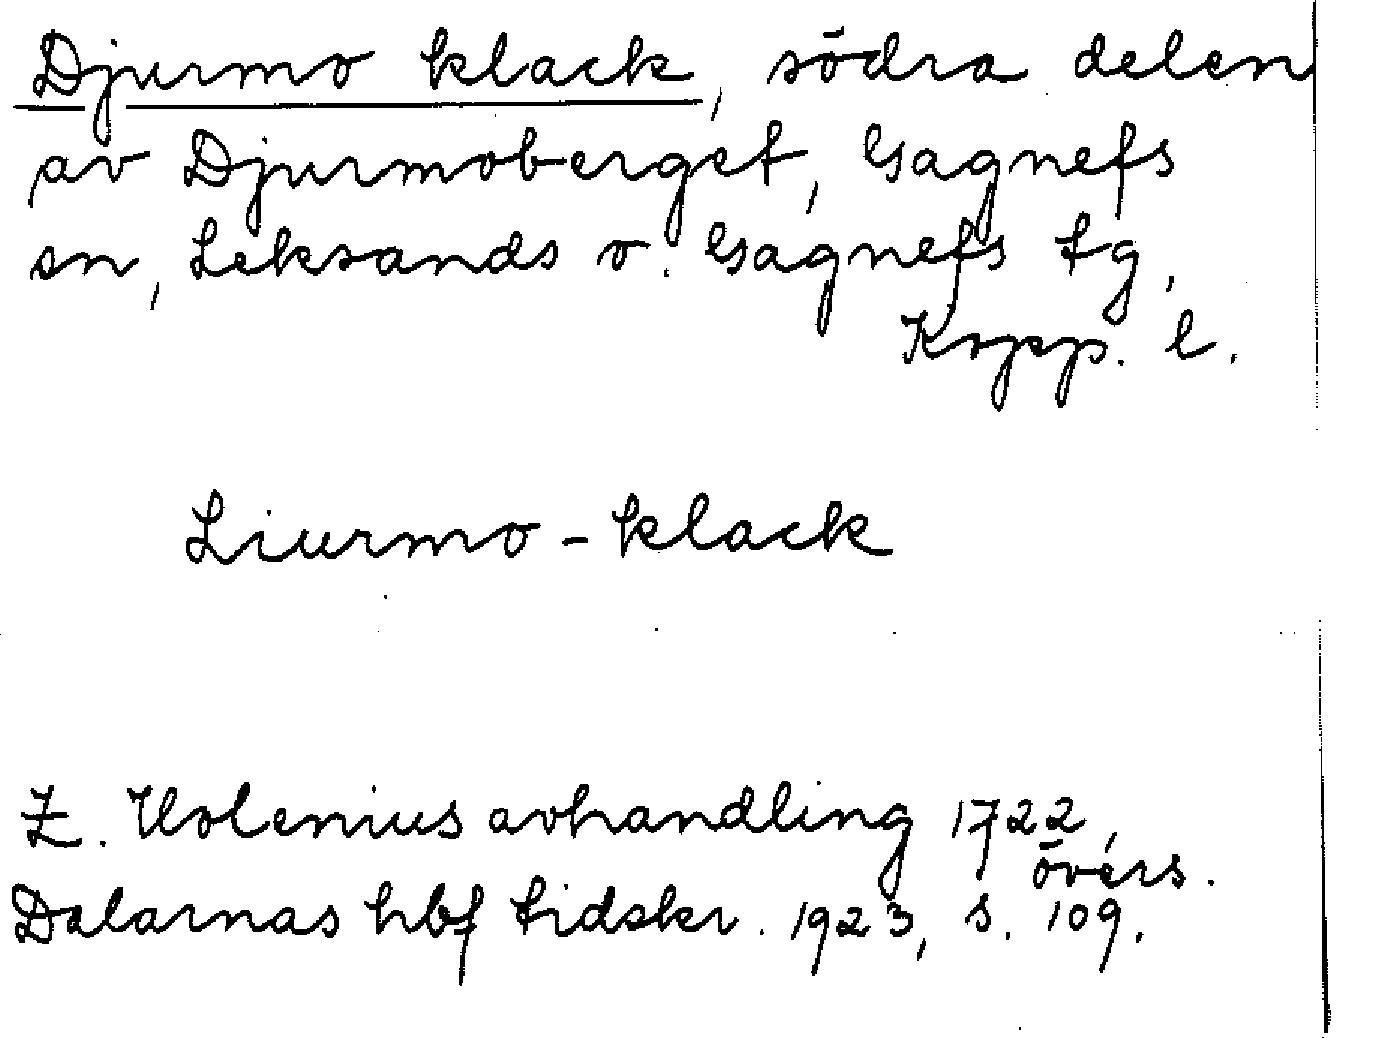 Djurmo klack, södra delen
av Djurmoberget, Gagnefs
sn, Leksands o. Gagnefs tg,
Kopp. l.
Liurmo-klack
Z. Holenius avhandling 1722,
övers.
Dalarnas hbf tidskr. 1923, s. 109.